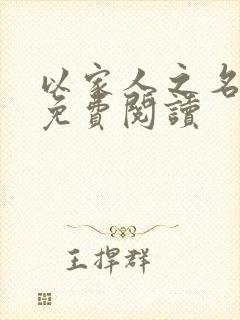 以家人之名
免費閱讀
王捍群